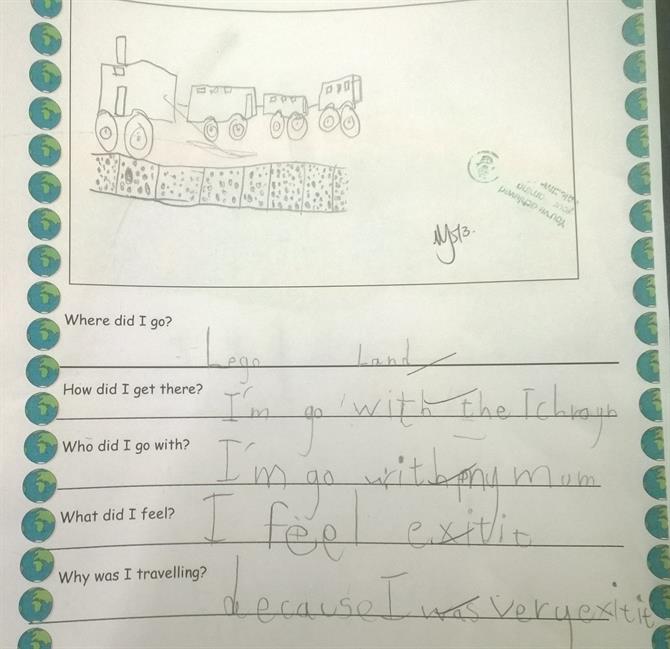 Where did I go?
Lego Land
How did I get there?
I'm go with the Tchrayh
Who did I go with?
I'm go with my mum
What did I feel?
I feel exitit
Why was I travelling?
because I was very exitit